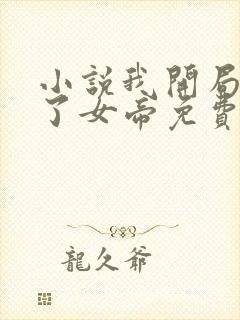 小說我開局
了女帝免費
龍久爺